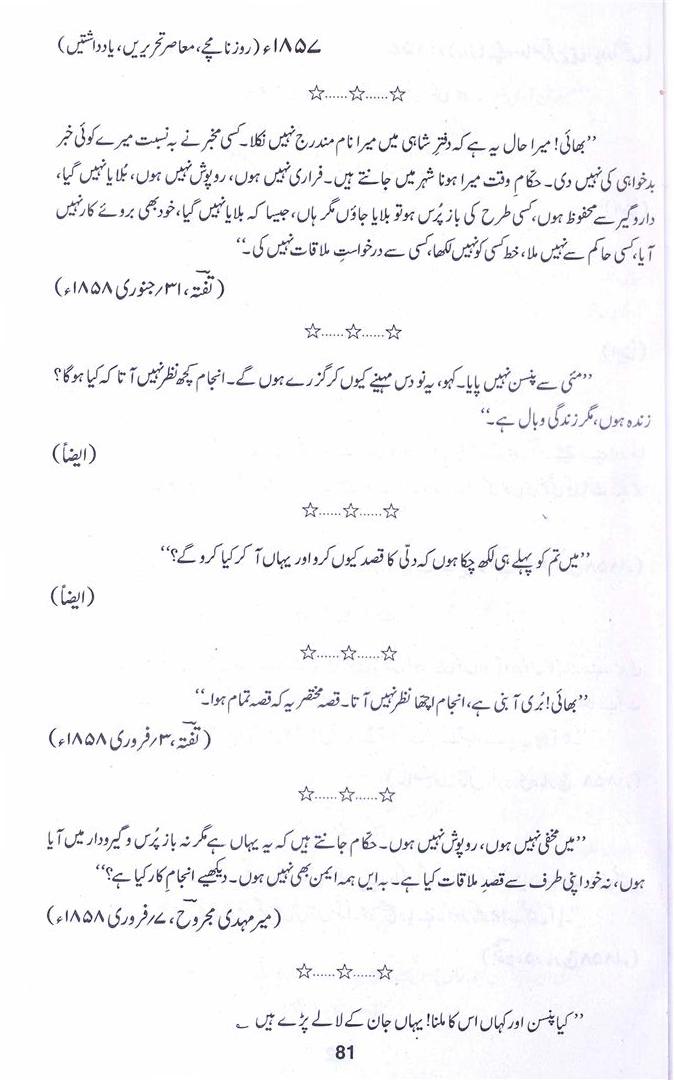 ۱۸۵۷ء (روزنامچے، معاصر تحریریں، یادداشتیں)
☆......☆......☆
’’بھائی! میرا حال یہ ہے کہ دفترِ شاہی میں میرا نام مندرج نہیں نکلا۔ کسی مخبر نے بہ نسبت میرے کوئی خبر
بدخواہی کی نہیں دی۔ حکّامِ وقت میرا ہونا شہر میں جانتے ہیں۔ فراری نہیں ہوں، روپوش نہیں ہوں، بُلایا نہیں گیا،
داروگیر سے محفوظ ہوں، کسی طرح کی باز پُرس ہو تو بلایا جاؤں مگر ہاں، جیسا کہ بلایا نہیں گیا، خود بھی بروئے کار نہیں
آیا، کسی حاکم سے نہیں ملا، خط کسی کو نہیں لکھا، کسی سے درخواستِ ملاقات نہیں کی۔‘‘
(تفتہ، ۳۱؍جنوری ۱۸۵۸ء)
☆......☆......☆
’’مئی سے پنسن نہیں پایا۔ کہو، یہ نو دس مہینے کیوں کر گزرے ہوں گے۔ انجام کچھ نظر نہیں آتا کہ کیا ہوگا؟
زندہ ہوں، مگر زندگی وبال ہے۔‘‘
(ایضاً)
☆......☆......☆
’’میں تم کو پہلے ہی لکھ چکا ہوں کہ دلّی کا قصد کیوں کرو اور یہاں آ کر کیا کرو گے؟‘‘
(ایضاً)
☆......☆......☆
’’بھائی! بُری آ بنی ہے، انجام اچھا نظر نہیں آتا۔ قصہ مختصر یہ کہ قصہ تمام ہوا۔‘‘
(تفتہ، ۳؍فروری ۱۸۵۸ء)
☆......☆......☆
’’میں مخفی نہیں ہوں، روپوش نہیں ہوں۔ حکّام جانتے ہیں کہ یہ یہاں ہے مگر نہ باز پُرس و گیرودار میں آیا
ہوں، نہ خود اپنی طرف سے قصدِ ملاقات کیا ہے۔ بہ ایں ہمہ ایمن بھی نہیں ہوں۔ دیکھیے انجامِ کار کیا ہے؟‘‘
(میر مہدی مجروح، ۷؍فروری ۱۸۵۸ء)
☆......☆......☆
’’کیا پنسن اور کہاں اس کا ملنا! یہاں جان کے لالے پڑے ہیں ؎
81